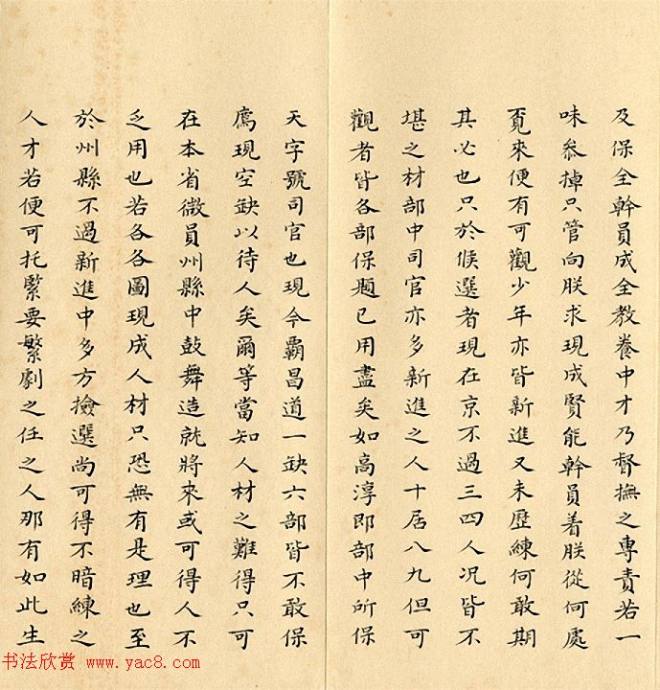 及保全幹員成全教養中才乃督撫之專責若一
味叅掉只管向朕求現成賢能幹員着朕從何處
覓來便有可觀少年亦皆新進又未歷練何敢期
其必也只於候選者現在京不過三四人況皆不
堪之材部中司官亦多新進之人十居八九但可
觀者皆各部保題已用盡矣如高淳即部中所保
天字號司官也現今霸昌道一缺六部皆不敢保
薦現空缺以待人矣爾等當知人材之難得只可
在本省微員州縣中鼓舞造就將來或可得人不
乏用也若各各圖現成人材只恐無有是理也至
於州縣不過新進中多方撿選尚可得不暗練之
人才若便可托緊要繁劇之任之人那有如此生
书法欣赏 www.yac8.com